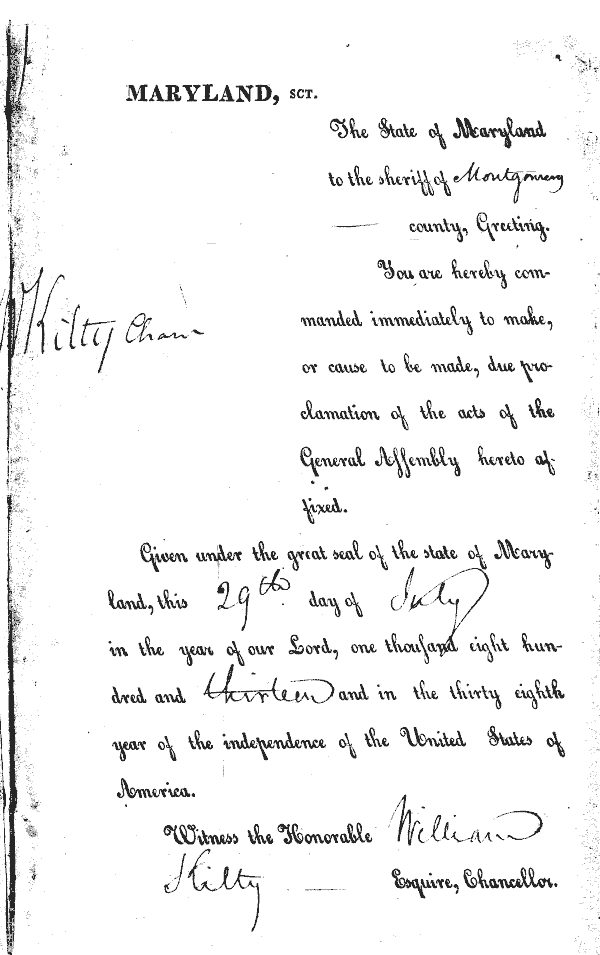 MARYLAND, SCT.
The State of Maryland
to the sheriff of Montgomery
county, Greeting.
You are hereby com-
manded immediately to make,
or cause to be made, due pro-
clamation of the acts of the
General Assembly hereto af-
fixed.
W Kilty Chan
Given under the great seal of the state of Mary-
land, this 29th day of July
in the year of our Lord, one thousand eight hun-
dred and thirteen and in the thirty eighth
year of the independence of the United States of
America.
Witness the Honorable William
Kilty — Esquire, Chancellor.